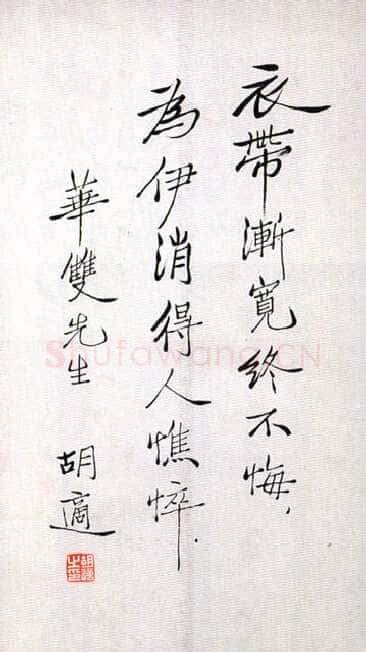 衣帶漸寬終不悔，
為伊消得人憔悴．
華雙先生
胡適
胡適之印
Shufawang.CN